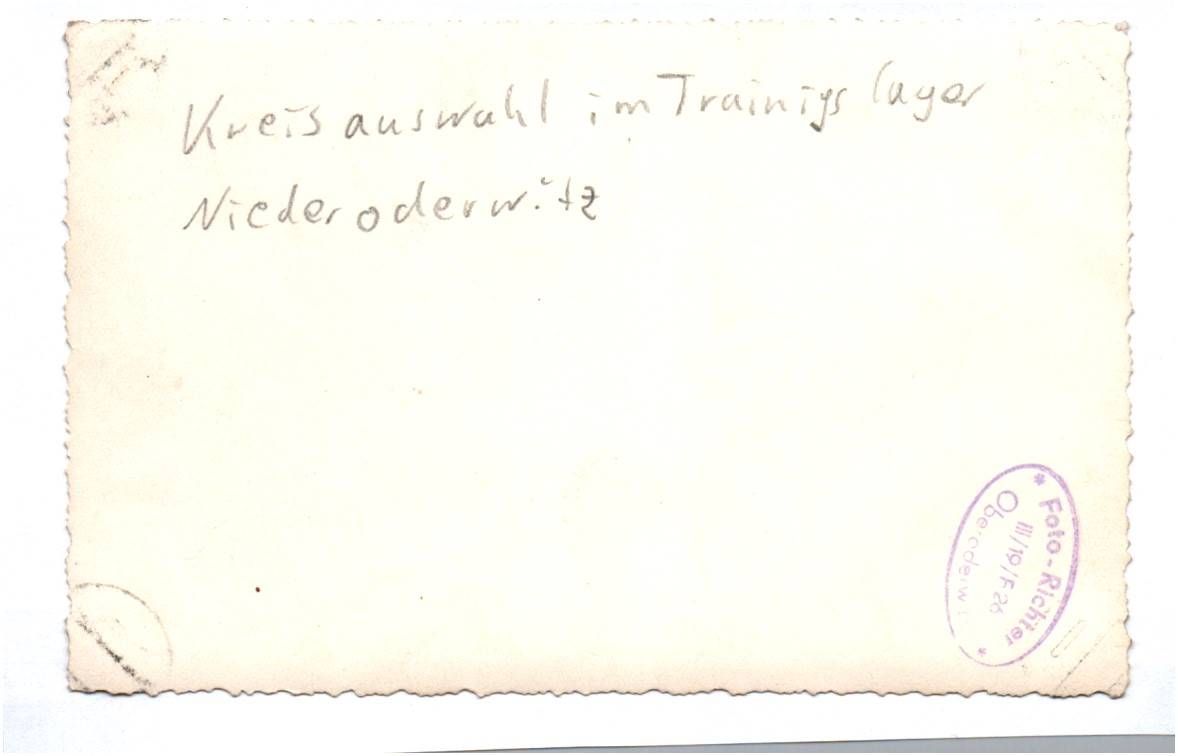 Kreisauswahl im Trainigslager
Niederoderwitz
* Foto-Richter *
III/19/F26
Oberoderwi